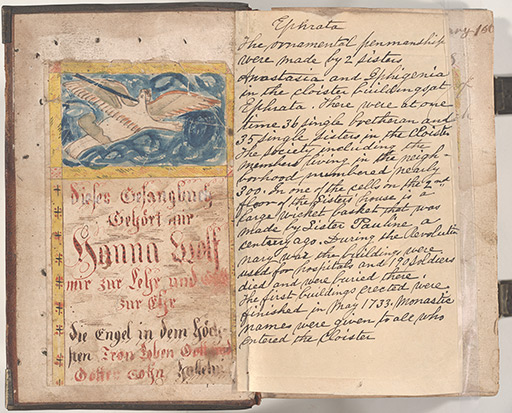 dieses Gesangbuch
Gehört mir
Hanna
mir zur Lehr und
zur Ehr
die Engel in dem Höch-
sten Tron Loben
Gottes Sohn
Ephrata
The ornamental penmanship
were made by 2 Sisters
Anastasia and Iphigenia
in the cloister buildings at
Ephrata. There were at one
time 36 single bretheran and
35 single sisters in the Cloister
The society including the
members living in the neigh-
borhood numbered nearly
300. In one of the cells on the 2nd
floor of the Sisters House is a
large wicket basket that was
made by Sister Pauline a
century ago. During the Revolutio
nary war the buildings were
used for hospitals and 190 Soldiers
died and were buried there.
The first buildings erected were
finished in May 1733. Monastic
names were given to all who
entered the Cloister